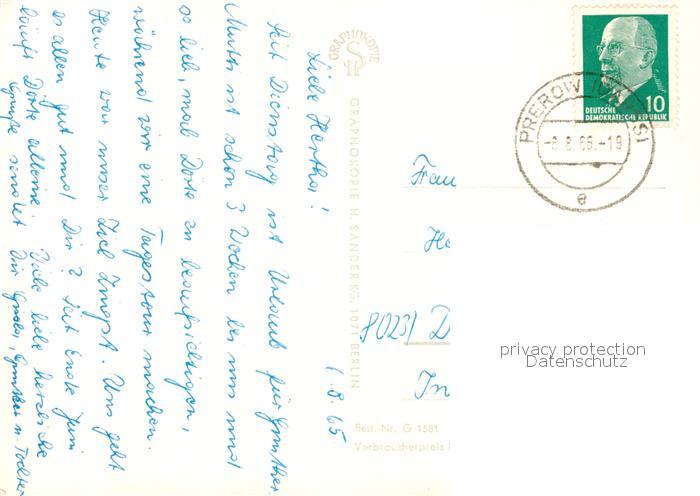 Liebe Hertha!
6.8.65
Seit Dienstag ist Urlaub für Günther
Mutti ist schon 3 Wochen bei uns und
so lieb, mal Dörte zu beaufsichtigen,
während wir eine Tagestour machen.
Heute war unser Ziel Zingst. Uns geht
es allen gut und Dir? Seit Ende Juni
läuft Dörte alleine. Viele liebe herzliche
Grüße sendet Dir Günther u. Tochter
GRAPHOKOPIE
H S
GRAPHOKOPIE H. SANDER KG, 1071 BERLIN
Best.-Nr. G 1581
Verbraucherpreis
DEUTSCHE
DEMOKRATISCHE REPUBLIK
10
PEROW
-8.8.66.-19
e
Frau
8023 D
In
privacy protection
Datenschutz